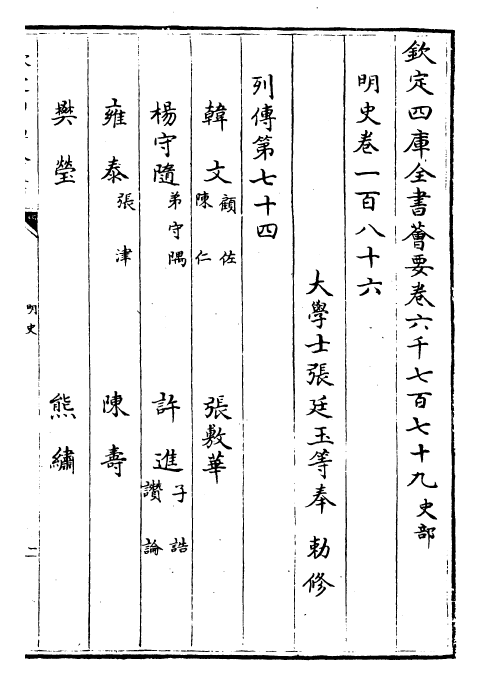 欽定四庫全書薈要卷六千七百七十九 史部
明史卷一百八十六
大學士張廷玉等奉 勅修
列傳第七十四
韓文 顧佐 陳仁 張敷華
楊守隨 弟守隅 許進 子誥 讚 論
雍泰 張津 陳壽
樊瑩 熊繡
明史
二